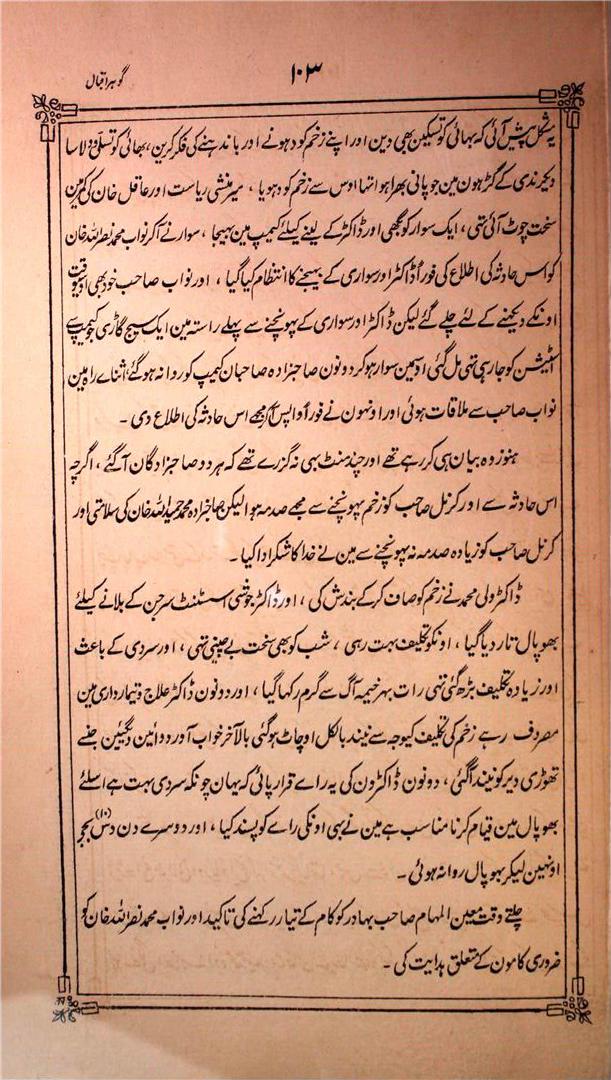 گوہر اقبال
۱۰۳
یہ مشکل پیش آئی کہ بہائی کو تسکین بھی دین اور اپنے زخم کو دہونے اور باندہنے کی فکر کرین، بھائی کو تسلی و دلاسا
دیکر ندی کے گڑہون مین جو پانی بھرا ہوا تہا اوس سے زخم کو دہویا ، میر منشی ریاست اور عاقل خان کی کمر مین
سخت چوٹ آئی تہی ، ایک سوار کو مجھی اور ڈاکٹر کے لینے کیلئے کیمپ مین بہیجا ، سوار نے آکر نواب محمد نصر اللہ خان
کو اس حادثہ کی اطلاع کی فوراً ڈاکٹر اور سواری کے بہیجنے کا انتظام کیا گیا ، اور نواب صاحب خود بھی اوسیوقت
اونکے دیکہنے کے لئے چلے گئے لیکن ڈاکٹر اور سواری کے پہونچنے سے پہلے راستہ مین ایک سیج گاڑی جو کیمپ سے
اسٹیشن کو جا رہی تہی مل گئی اوسمین سوار ہو کر دونون صاحبزادہ صاحبان کیمپ کو روانہ ہو گئے، اثناے راہ مین
نواب صاحب سے ملاقات ہوئی اور اونہون نے فوراً واپس آکر مجھے اس حادثہ کی اطلاع دی ۔
ہنوز وہ بیان ہی کر رہے تھے اور چند منٹ بہی نہ گزرے تھے کہ ہر دو صاحبزادگان آگئے ، اگرچہ
اس حادثہ سے اور کرنل صاحب کو زخم پہونچنے سے مجھے صدمہ ہوا لیکن صاحبزادہ محمد حمید اللہ خان کی سلامتی اور
کرنل صاحب کو زیادہ صدمہ نہ پہونچنے سے مین نے خدا کا شکر ادا کیا ۔
ڈاکٹر ولی محمد نے زخم کو صاف کر کے بندش کی ، اور ڈاکٹر جوشی اسسٹنٹ سرجن کے بلانے کیلئے
بھوپال تار دیا گیا ، اونکو تکلیف بہت رہی ، شب کو بھی سخت بے چینی تہی ، اور سردی کے باعث
اور زیادہ تکلیف بڑھ گئی تہی رات بہر خیمہ آگ سے گرم رکہا گیا ، اور دونون ڈاکٹر علاج و تیمارداری مین
مصروف رہے زخم کی تکلیف کیوجہ سے نیند بالکل اوچاٹ ہو گئی بالآخر خواب آور دوائین دیگئین جنسے
تھوڑی دیر کو نیند آگئی ، دونون ڈاکٹرون کی یہ راے قرار پائی کہ یہان چونکہ سردی بہت ہے اسلئے
بھوپال مین قیام کرنا مناسب ہے مین نے بہی اونکی راے کو پسند کیا ، اور دوسرے دن دس (۱۰) بجے
اونہین لیکر بہوپال روانہ ہوئی ۔
چلتے وقت معین المہام صاحب بہادر کو کام کے تیار رکہنے کی تاکید اور نواب محمد نصر اللہ خان کو
ضروری کامون کے متعلق ہدایت کی ۔